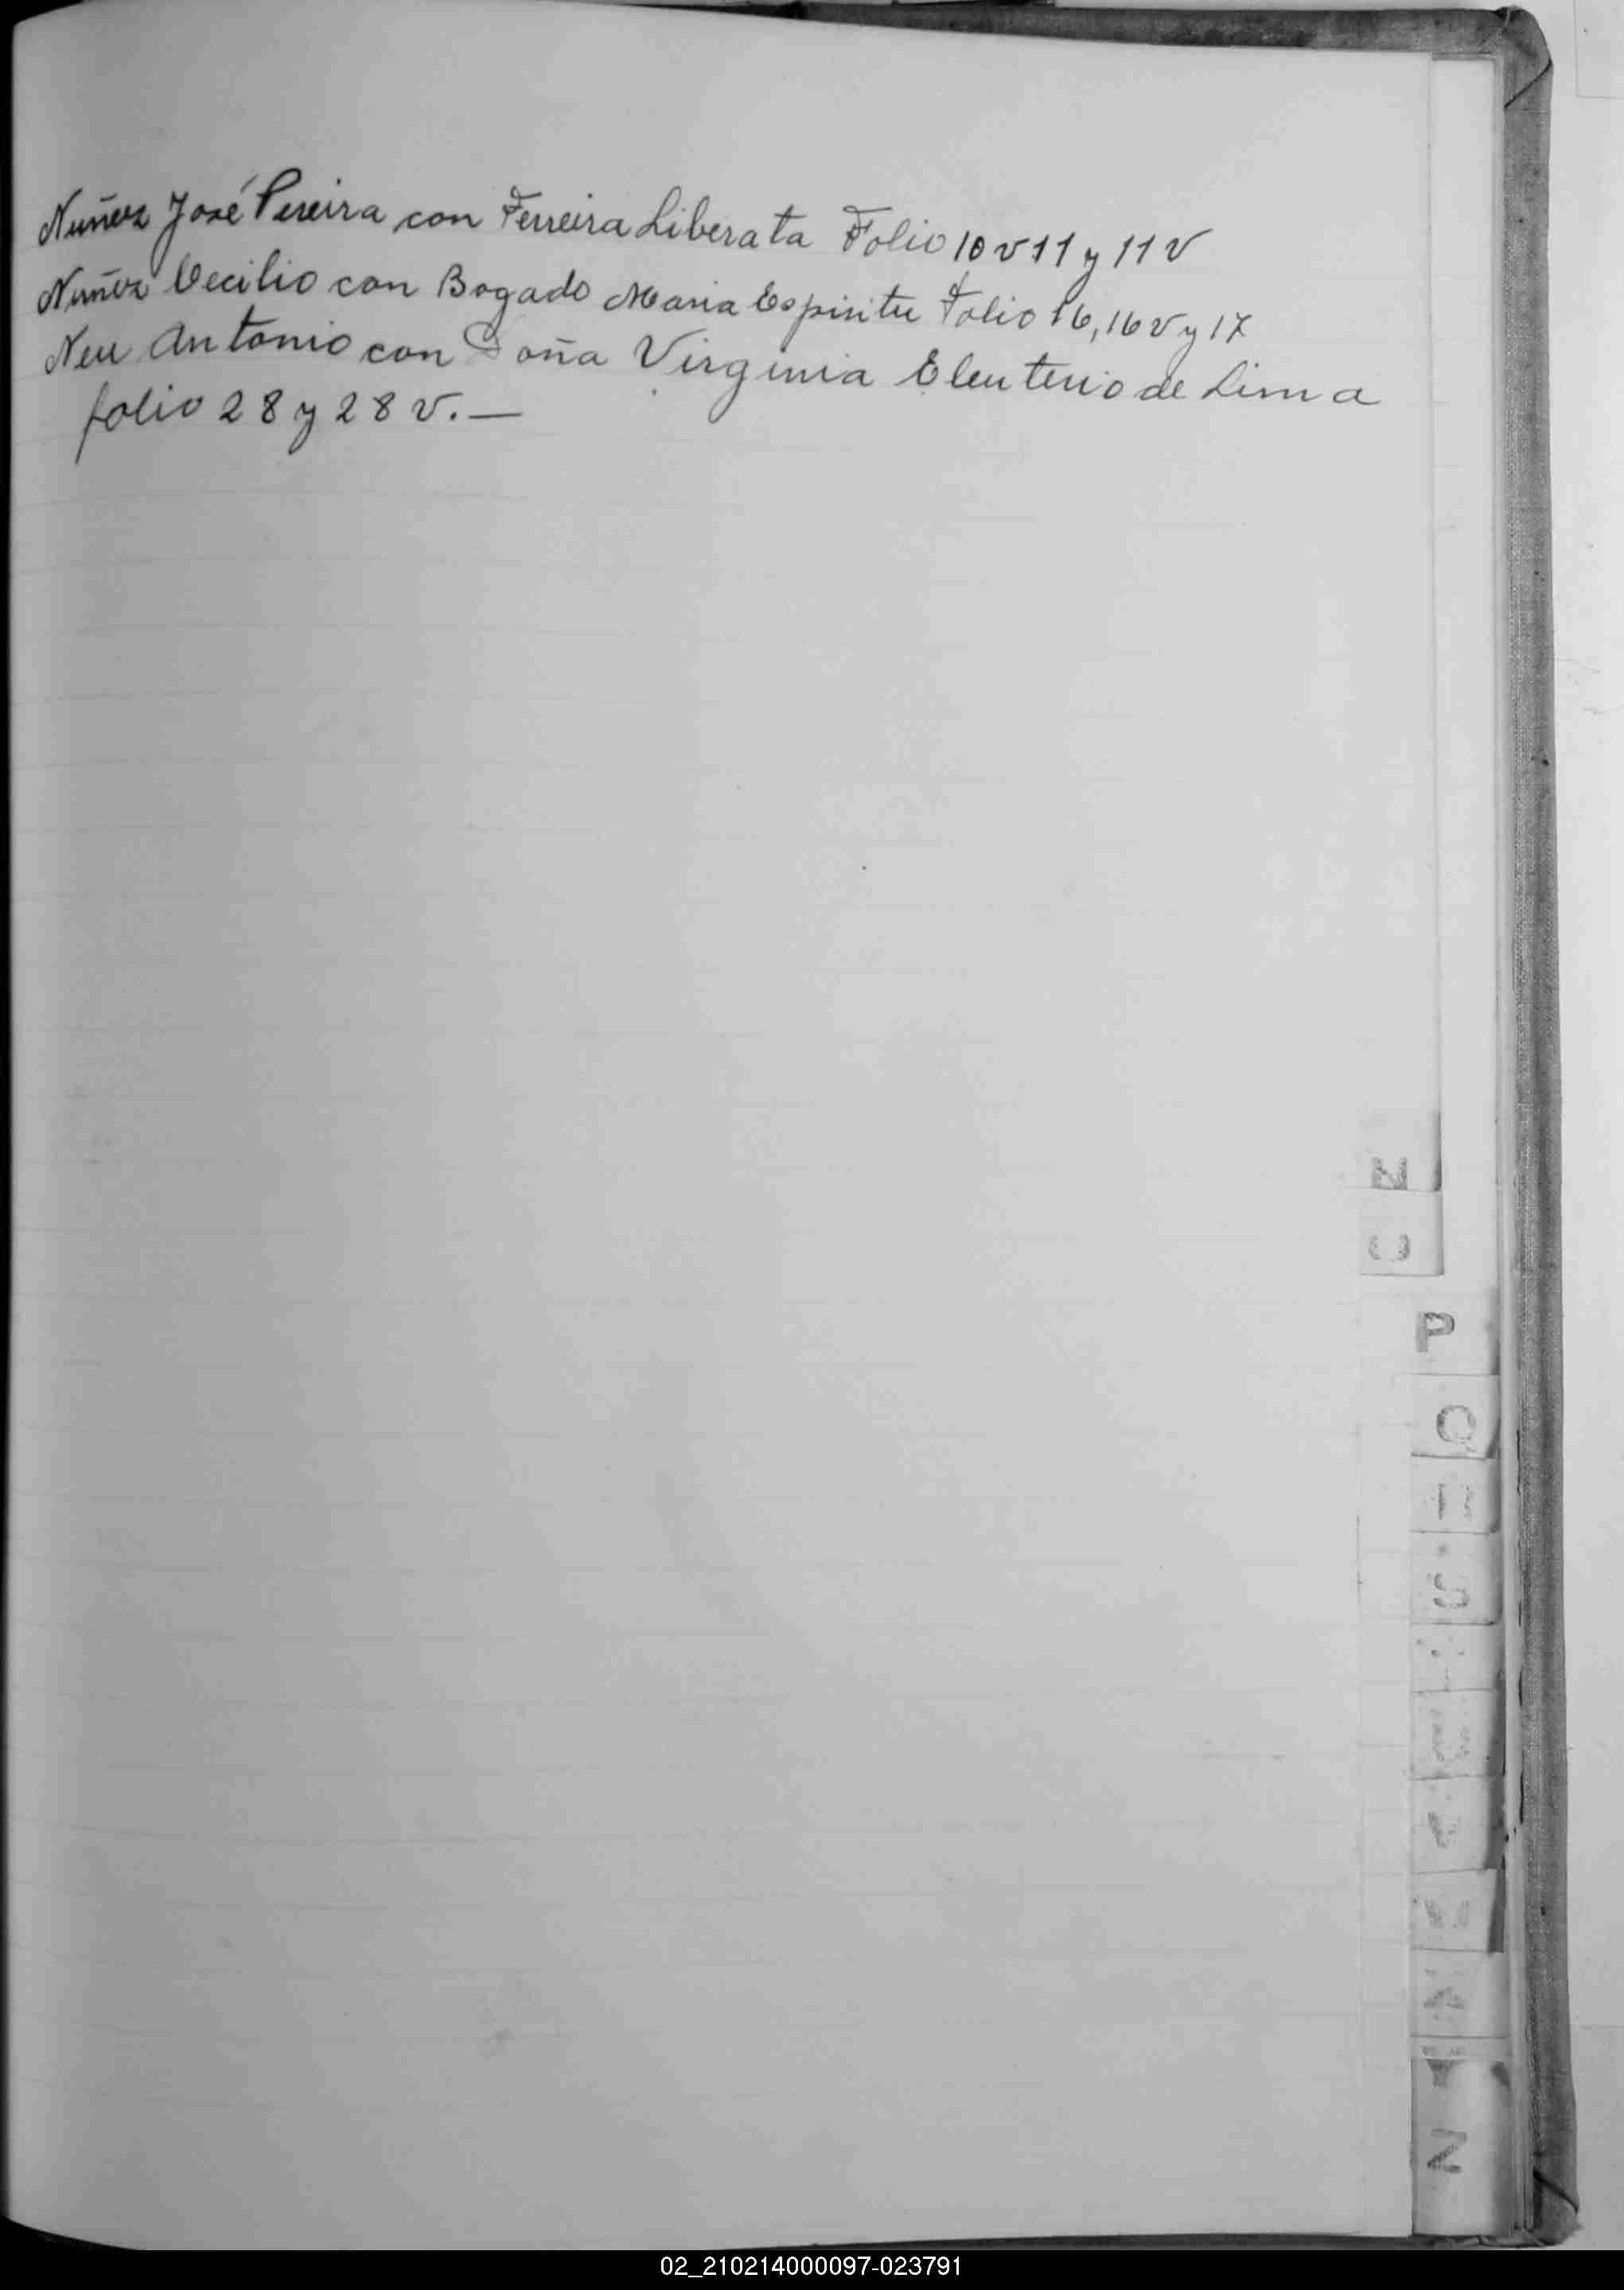 Nuñez José Pereira con Ferreira Liberata Folio 10 v 11 y 11 v
Nuñez Cecilio con Bogado Maria Espiritu Folio 16, 16 v y 17
Neu Antonio con Doña Virginia Eleuterio de Lima
folio 28 y 28 v. —
N
P
Q
Z
02_210214000097-023791